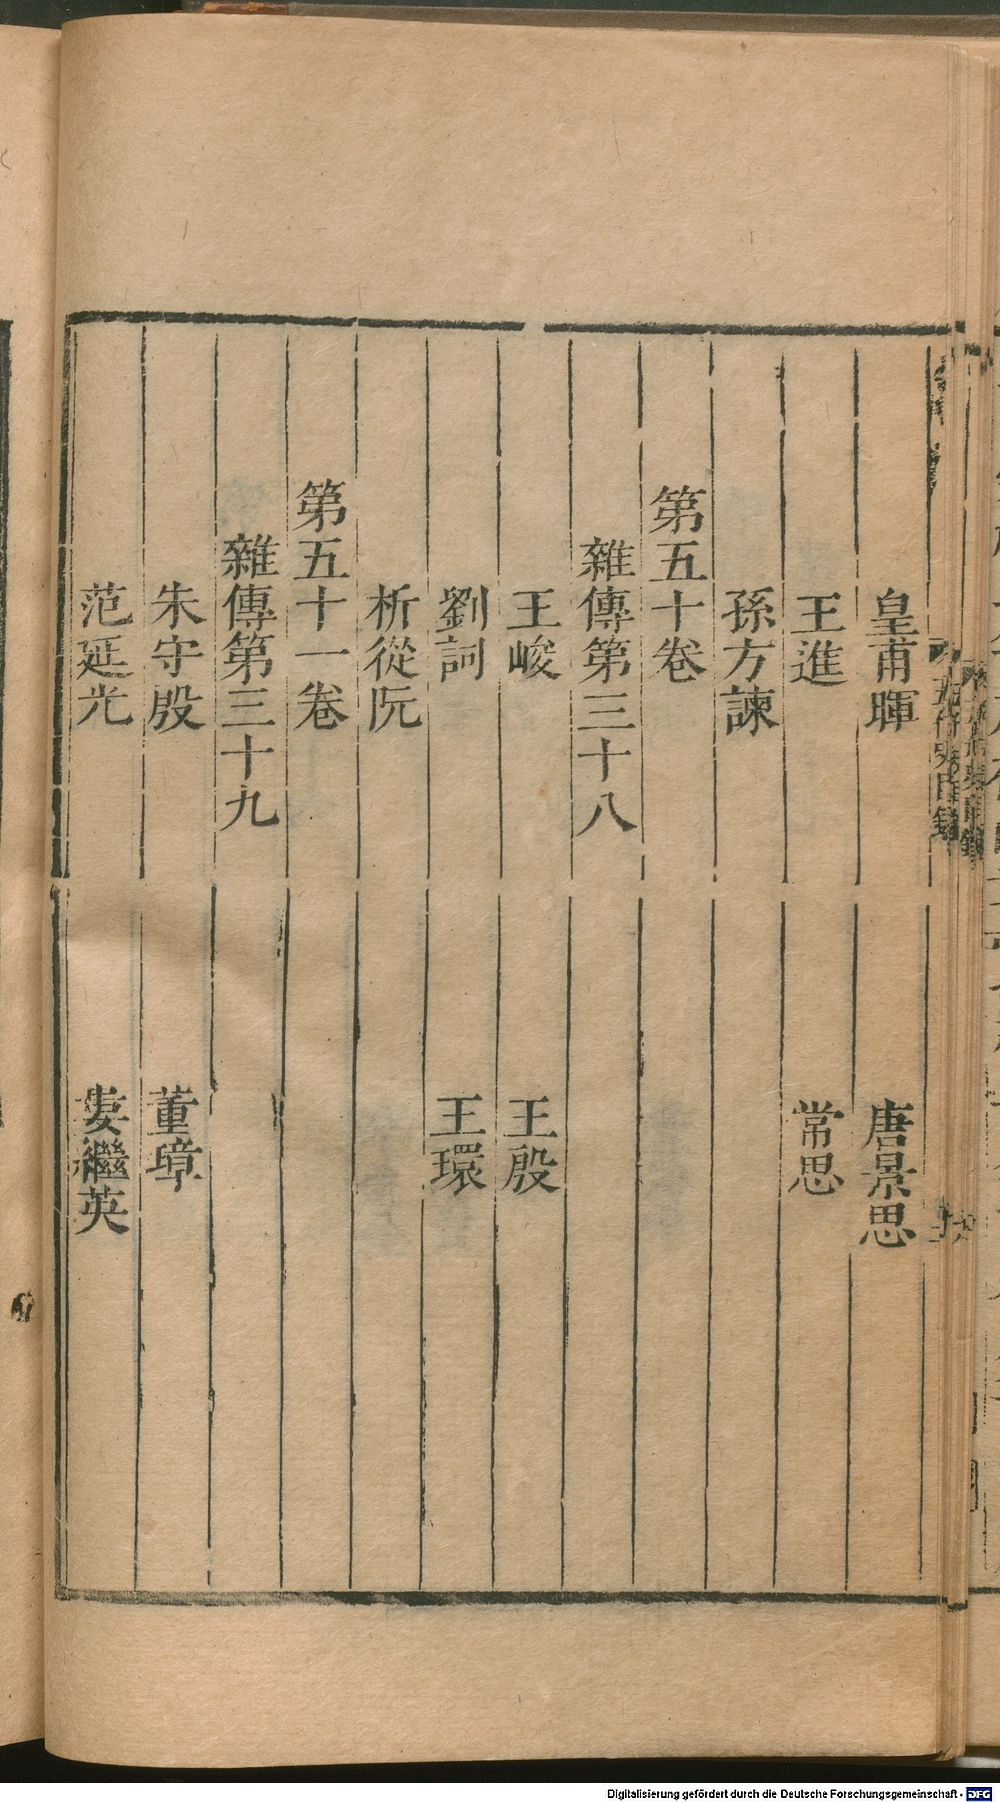 皇甫暉　唐景思
王進　常思
孫方諫
第五十卷
雜傳第三十八
王峻　王殷
劉詞　王環
折從阮
第五十一卷
雜傳第三十九
朱守殷　董璋
范延光　婁繼英
Digitalisierung gefördert durch die Deutsche Forschungsgemeinschaft - DFG